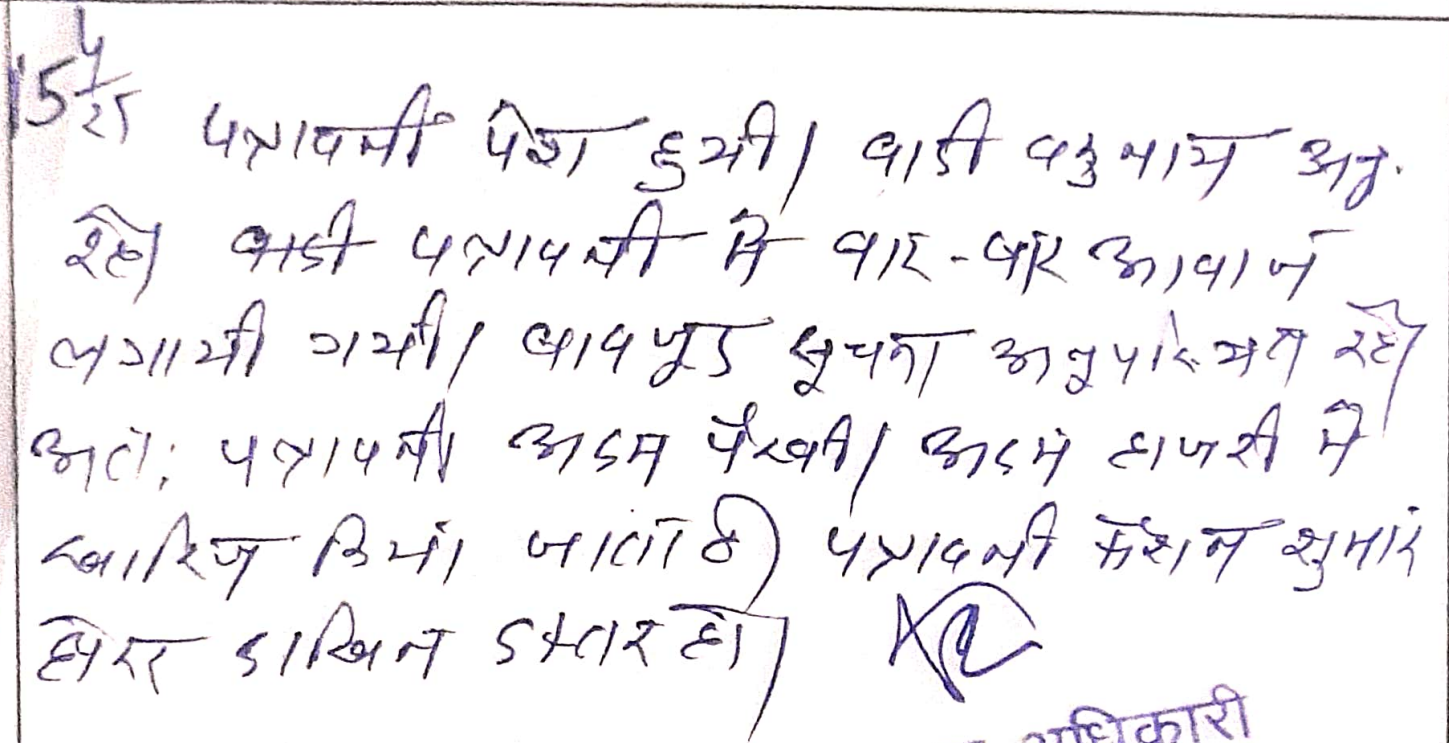 15/4/25 पत्रावली पेश हुयी। वादी वकुलाय अनु.
रहे। वादी पत्रावली मे बार-बार आवाज
लगायी गयी। बावजूद सूचना अनुपस्थित रहे।
अतः पत्रावली अदम पैरवी। अदम हाजरी मे
खारिज किया जाता है। पत्रावली फैशल शुमार
होकर दाखिल दफ्तर हो।
अधिकारी